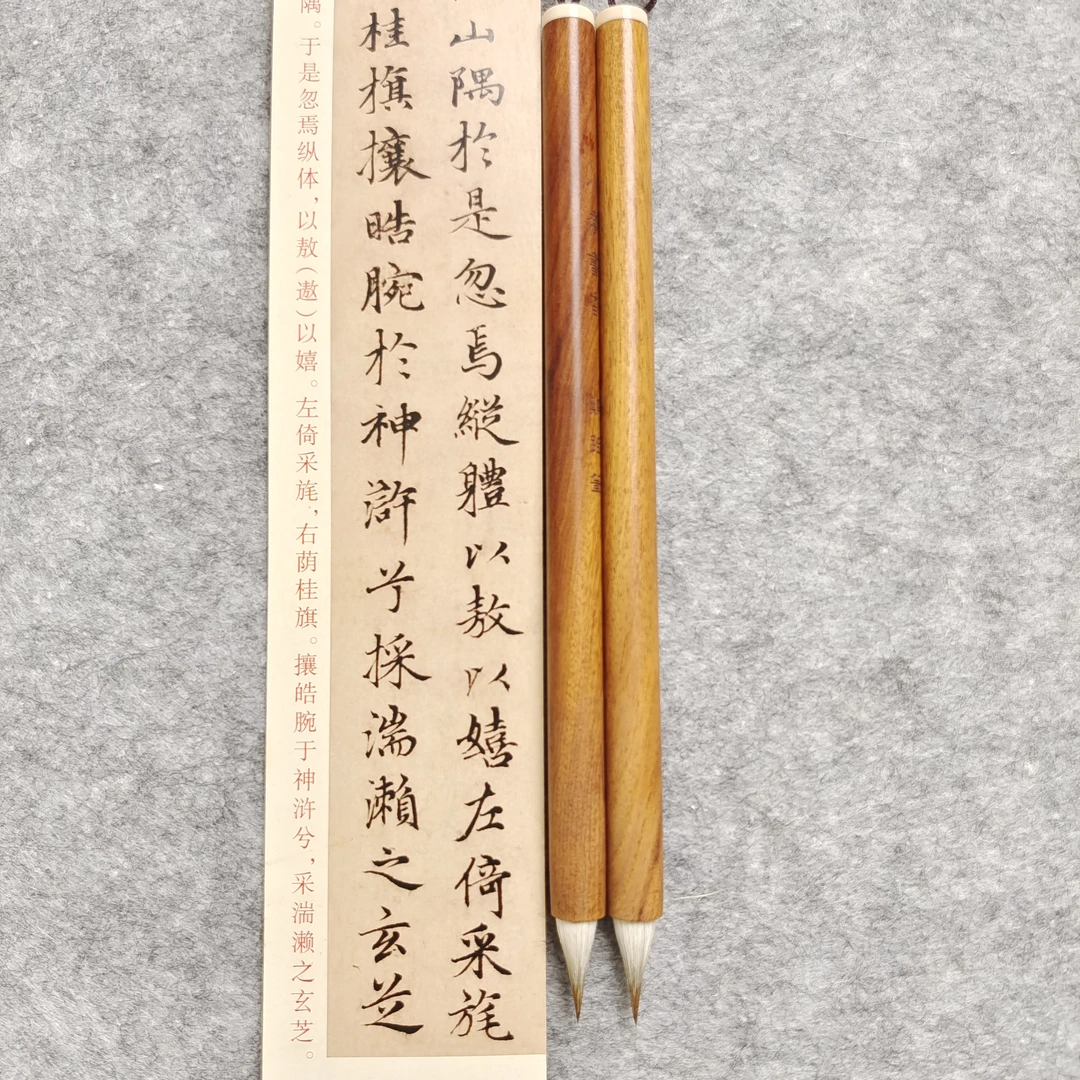 山隅於是忽焉縱體以敖以嬉左倚采旄
桂旗攘晧腕於神滸兮採湍瀨之玄芝
隅。于是忽焉纵体，以敖（遨）以嬉。左倚采旄，右荫桂旗。攘皓腕于神浒兮，采湍濑之玄芝。